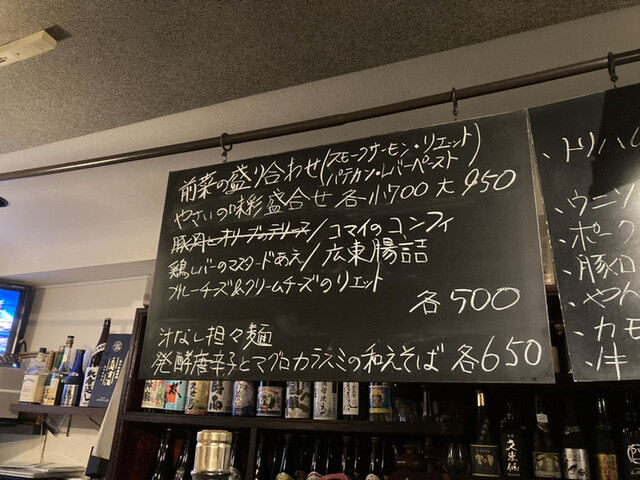 前菜の盛り合わせ(スモークサーモン・リエット
パテカン・レバーペースト)
やさいの味彩盛合せ 各小700大950
豚肉とオリーブのテリーヌ/コマイのコンフィ
鶏レバーのマスタードあえ/広東腸詰
ブルーチーズ&クリームチーズのリエット
各500
汁なし担々麺
発酵唐辛子とマグロカラスミの和えそば 各650
、トリハ
、ウニソ
、ポーク
、豚ロ
、やん
、カモ
久米仙